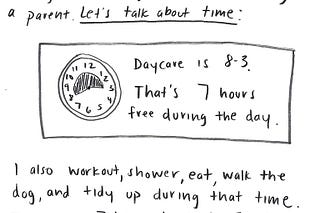 a parent. Let's talk about time:
11 12
12
Daycare is 8-3.
That's 7 hours
free during the day.
I also workout, shower, eat, walk the
dog, and tidy up during that time.